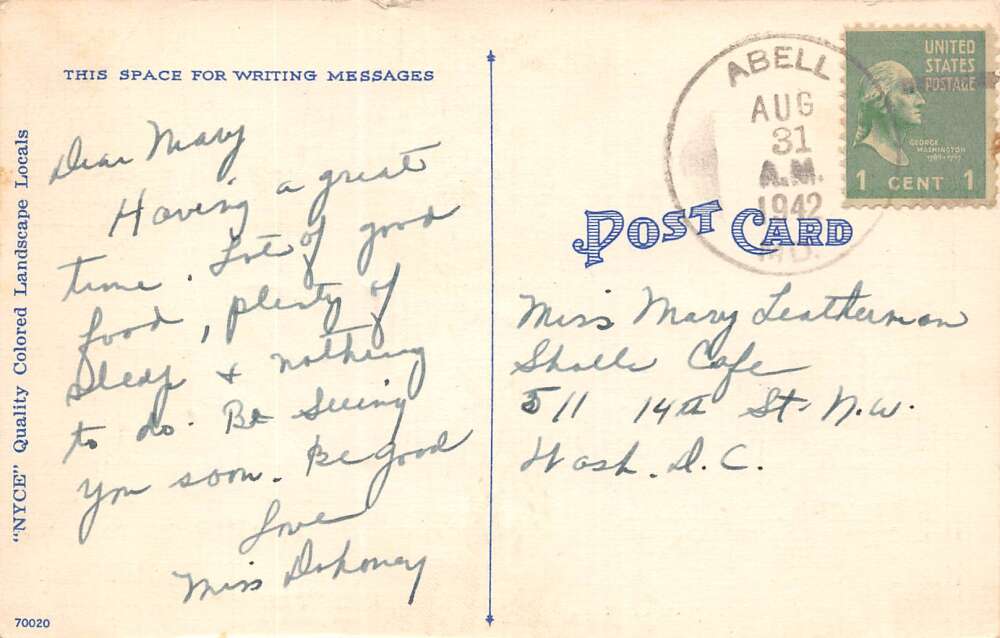 THIS SPACE FOR WRITING MESSAGES
"NYCE" Quality Colored Landscape Locals
Dear Mary
Having a great
time. Lots of good
food, plenty of
sleep + nothing
to do. Be Seeing
you soon. Be good
Love
Miss Dohoney
70020
ABELL
AUG
31
A.M.
1942
MD.
UNITED
STATES
POSTAGE
GEORGE
WASHINGTON
1789-1797
1 CENT 1
POST CARD
Miss Mary Leatherman
Sholls Cafe
511 14th St. N.W.
Wash. D.C.